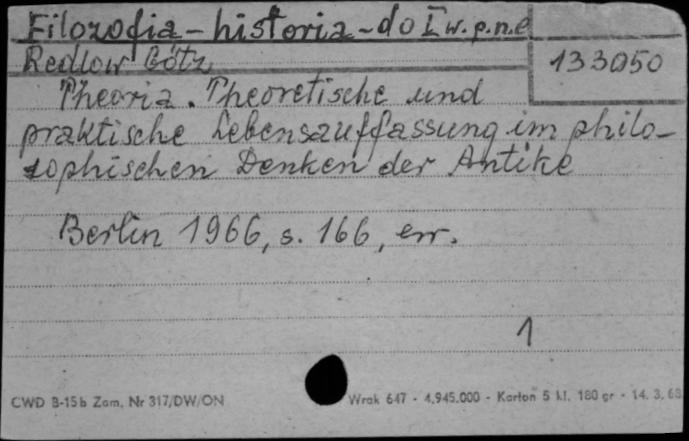 Filozofia - historia - do I w. p.n.e
Redlow Götz
133050
Theoria. Theoretische und
praktische Lebensauffassung im philo-
sophischen Denken der Antike
Berlin 1966, s. 166, err.
1
CWD B-15b Zam. Nr 317/DW/ON
Wrak 647 - 4.945.000 - Karton 5 kl. 180 gr - 14. 3. 68